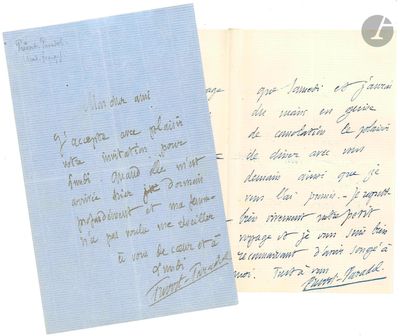 Mon cher ami
J'accepte avec plaisir
votre invitation pour
Lundi. Quand elle m'est
arrivée hier je dormais
profondément et ma femme
n'a pas voulu me réveiller
à vous de cœur et à
Lundi
Prévost-Paradol
que Samedi et j'aurai
du moins en guise
de consolation le plaisir
de diner avec vous
demain ainsi que je
vous l'ai promis. Je regrette
bien vivement notre petit
voyage et je vous suis bien
reconnaissant d'avoir songé à
moi. Tout à vous
Prévost-Paradol